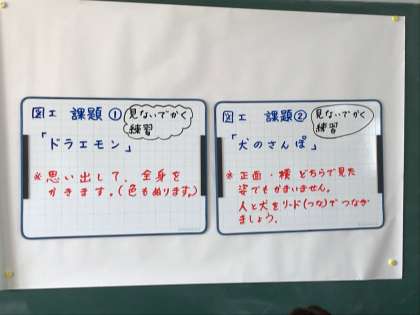 図工 課題① 見ないでかく
練習
「ドラエモン」
※思い出して、全身を
かきます。(色もぬります。)
図工 課題② 見ないでかく
練習
「犬のさんぽ」
※正面・横どちらで見た
姿でもかまいません。
人と犬をリード(つな)でつなぎ
ましょう。